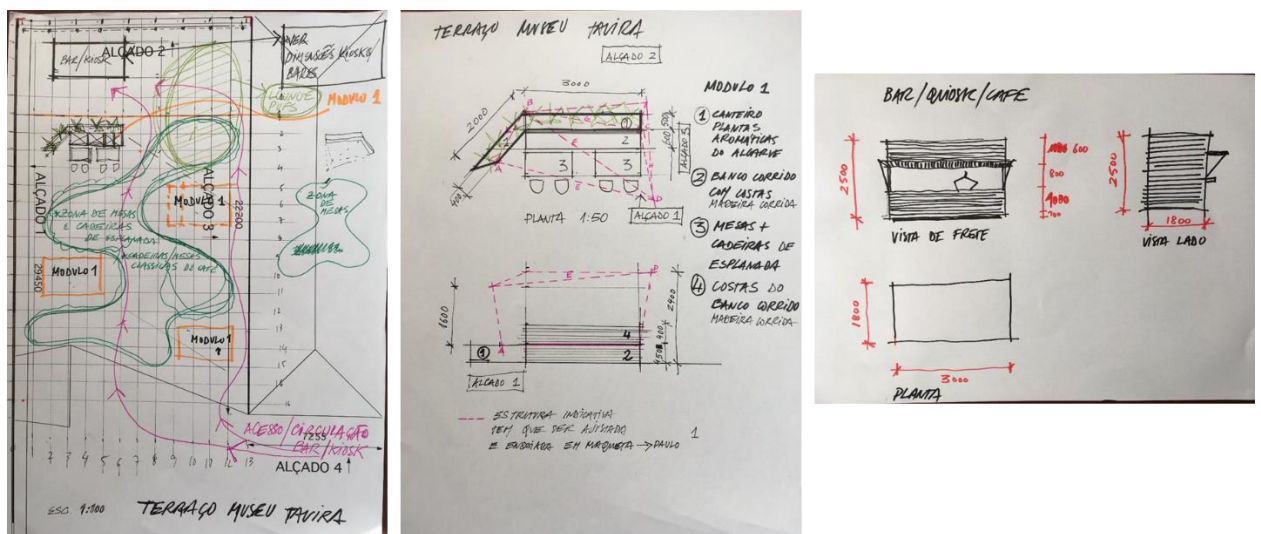 ALÇADO 2
BAR/KIOSK
VER
DIMENSÕES KIOSKS/
BARES
LOUNGE
PUFS
MODULO 1
ALÇADO 1
ALÇADO 3
22200
MODULO 1
ZONA DE MESAS
E CADEIRAS
DE ESPLANADA
CADEIRAS/MESAS
CLASSICAS DE CAFÉ
ZONA
DE
MESAS
29450
MODULO 1
MODULO
1
ACESSO/CIRCULAÇÃO
BAR/KIOSK
7255
ALÇADO 4
1 2 3 4 5 6 7 8 9 10 11 12 13
2
3
4
5
6
7
8
9
10
11
12
13
14
15
16
ESC. 1:100
TERRAÇO MUSEU TAVIRA
TERRAÇO MUSEU TAVIRA
ALÇADO 2
3000
2000
400
600 500
ALÇADO 3
B
A
E
D
1
2
3 3
PLANTA 1:50
ALÇADO 1
MODULO 1
1 CANTEIRO
PLANTAS
AROMATICAS
DO ALGARVE
2 BANCO CORRIDO
COM COSTAS
MADEIRA CORRIDA
3 MESAS +
CADEIRAS DE
ESPLANADA
4 COSTAS DO
BANCO CORRIDO
MADEIRA CORRIDA
E
D
1600
2400
450 400
4
2
1
A
ALÇADO 1
ESTRUTURA INDICATIVA
TEM QUE SER AJUSTADA
E ENSAIADA EM MAQUETA → PAULO
1
BAR/QUIOSK/CAFE
2500
600
800
1000
100
VISTA DE FRETE
2500
1800
VISTA LADO
1800
3000
PLANTA